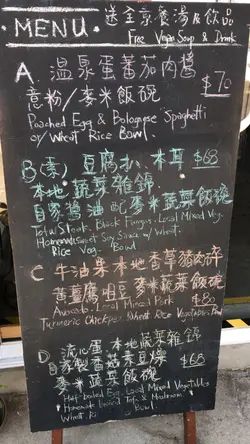 送全素餐湯及飲品
MENU
Free Vegan Soup & Drink
A 溫泉蛋蕃茄肉醬
意粉/麥米飯碗 $70
Poached Egg & Bolognese Spaghetti
or/ Wheat Rice Bowl
B(素) 豆腐扒、木耳 $68
本地蔬菜雜錦
自家醬油配麥米蔬菜飯碗
Tofu Steak, Black Fungus, Local Mixed Veg.
Homemade Sweet Soy Sauce w/ Wheat
Rice Veg. Bowl
C 牛油果本地香草豬肉碎
黃薑鷹咀豆麥米蔬菜飯碗
Avocado Local Minced Pork $80
Turmeric Chickpea Wheat Rice Vegetables Bowl
D 流心蛋本地蔬菜雜錦
自家製香菇素豆燥 $68
麥米蔬菜飯碗
Half-boiled Egg, Local Mixed Vegetables
Homemade Tofu & Mushroom
Wheat Bowl